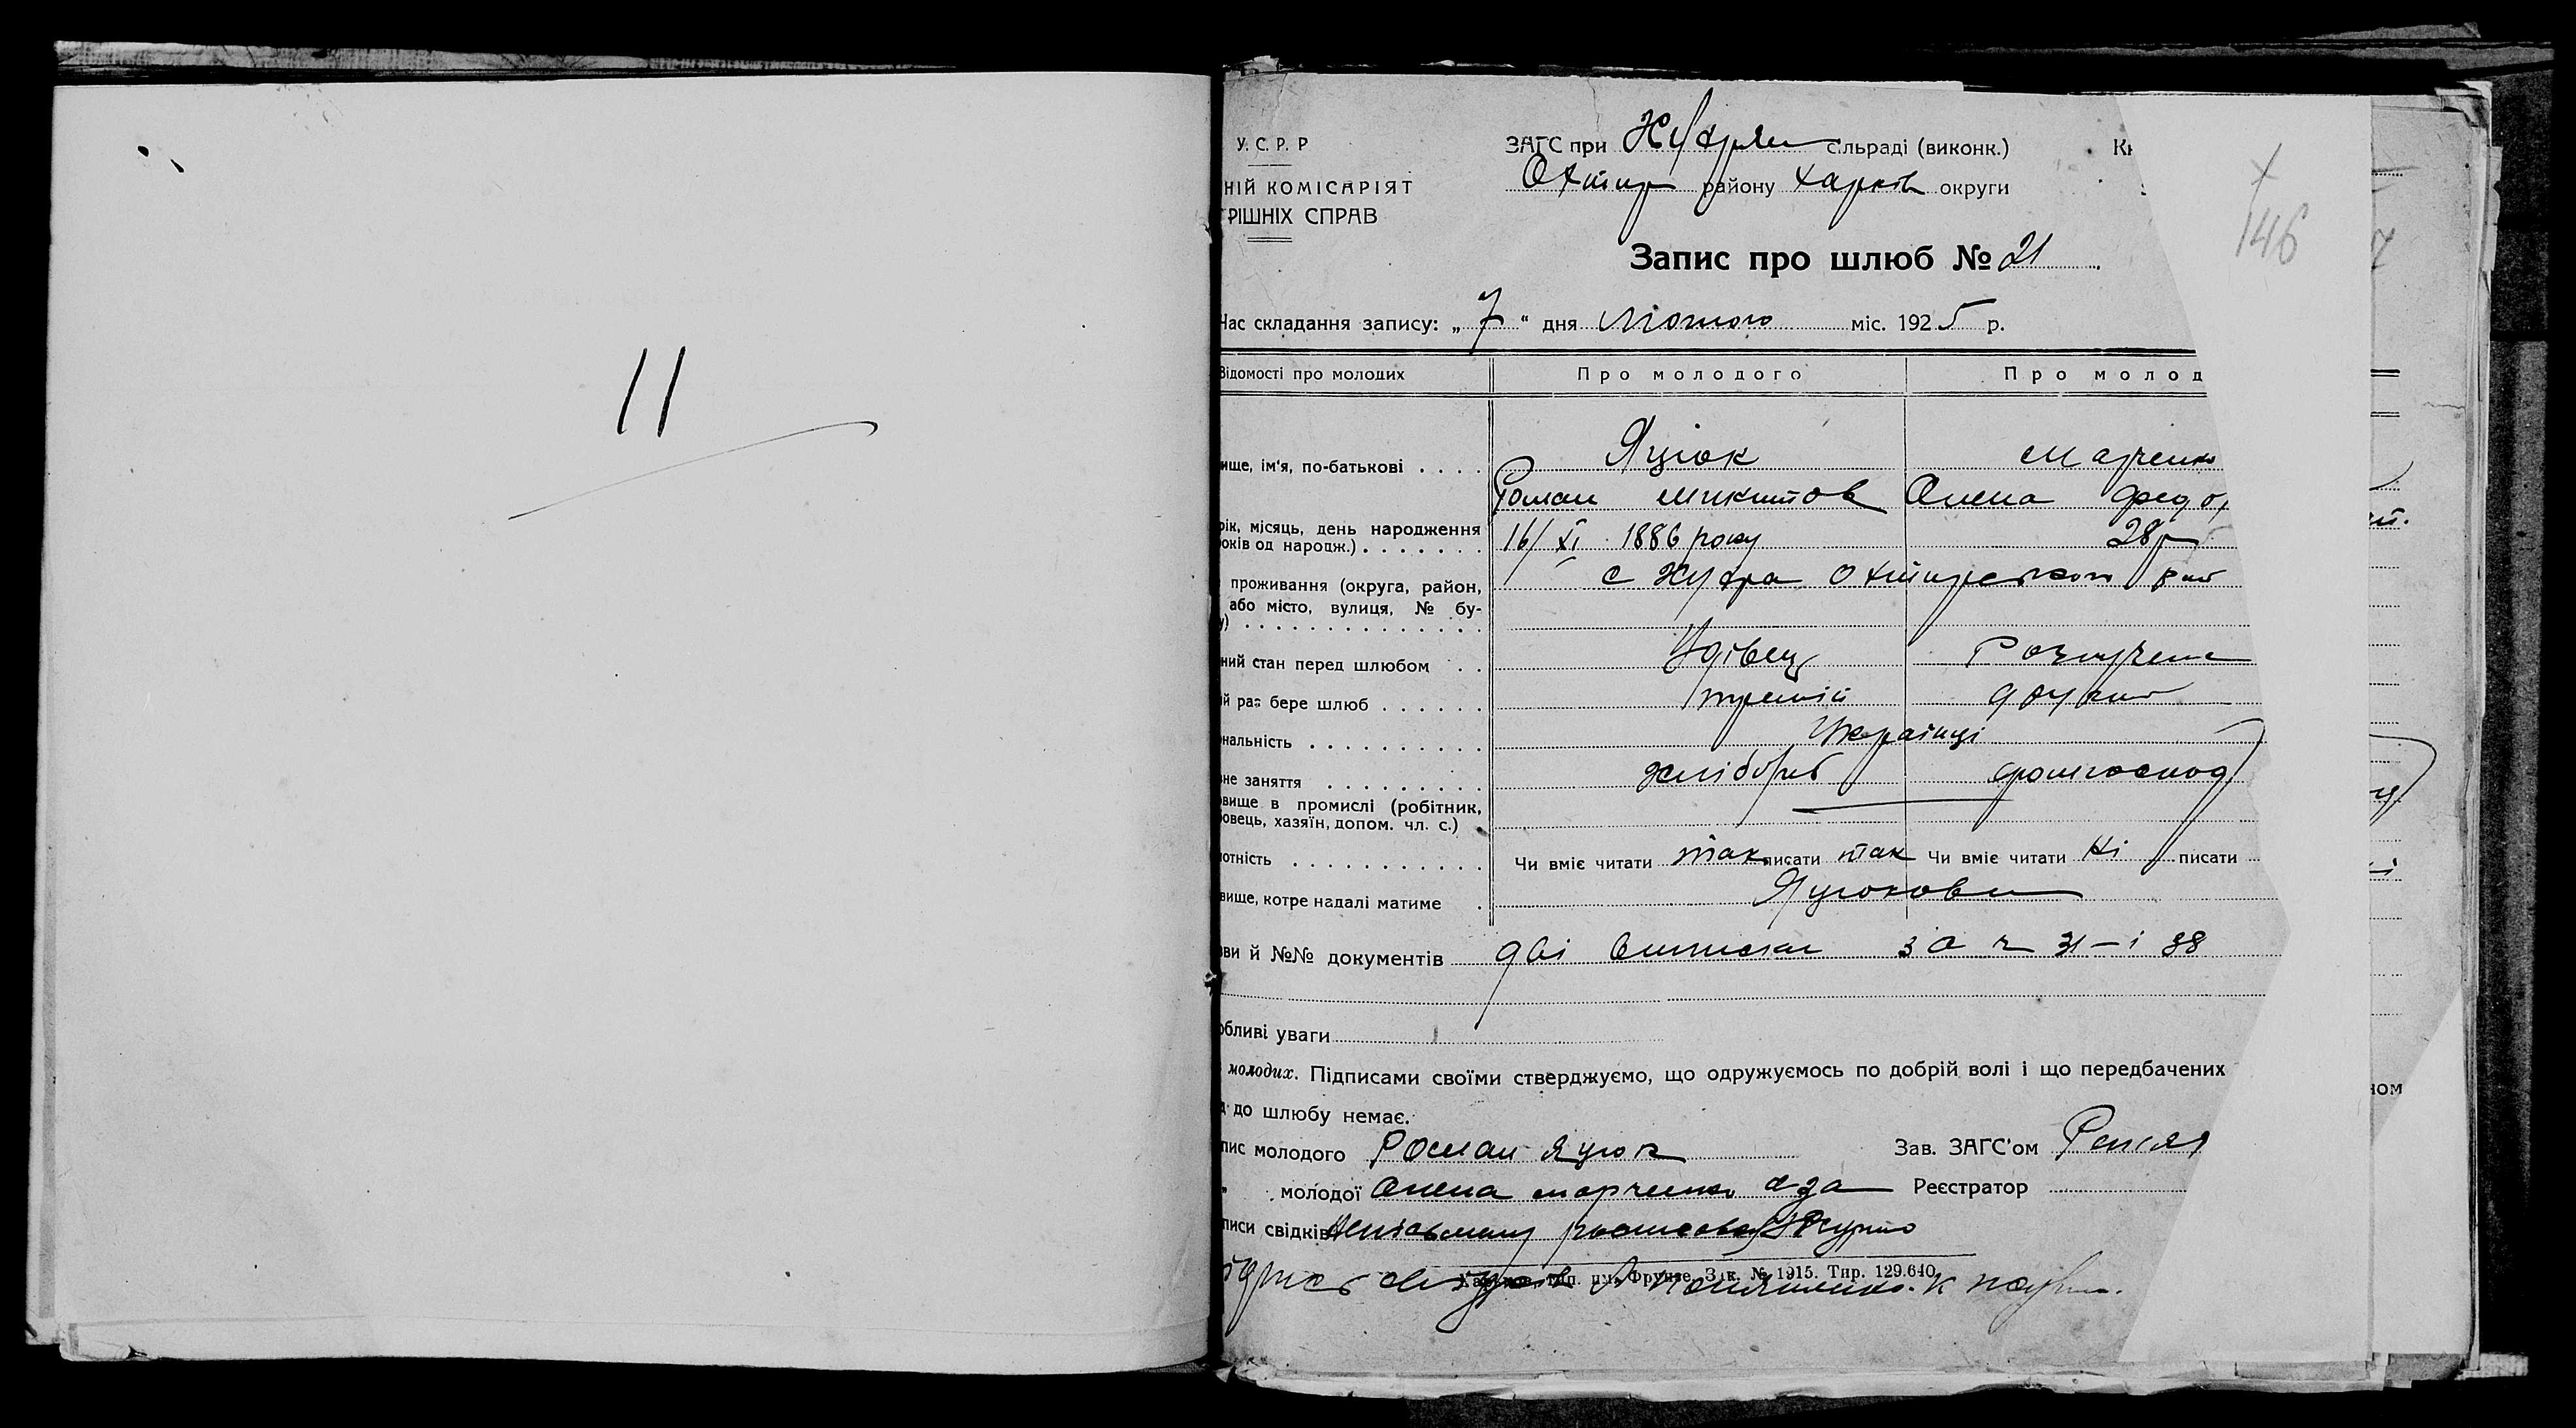 11
У. С. Р. Р
НІЙ КОМІСАРІЯТ
РІШНІХ СПРАВ
ЗАГС при сільраді (виконк.)
Охтир району Харків округи
146
Запис про шлюб № 21
Час складання запису: „ 7 “ дня Лютого міс. 1925 р.
Відомості про молодих Про молодого Про молод
ище, ім'я, по-батькові . . . . Яцюк Марченко
Роман Микитов Олена Федор
рік, місяць, день народження
оків од народж.) . . . . . . . 16/XI 1886 року 28 р
проживання (округа, район, с Охтирського рай
або місто, вулиця, № бу-
у) . . . . . . . . . . . . . .
ний стан перед шлюбом . . Удівець Розлучена
й раз бере шлюб . . . . . . третій другий
нальність . . . . . . . . . . Українці
не заняття . . . . . . . . . хлібороб домгоспод
овище в промислі (робітник,
овець, хазяїн, допом. чл. с.)
отність . . . . . . . . . . . Чи вміє читати так писати так Чи вміє читати Ні писати
вище, котре надалі матиме . Яцюкови
ви й №№ документів дві виписки за № 31 – і 38
обливі уваги
молодих. Підписами своїми стверджуємо, що одружуємось по добрій волі і що передбачених
д до шлюбу немає.
пис молодого Роман Яцюк Зав. ЗАГС'ом
„ молодої Олена Марченко а за Реєстратор
писи свідків
тип. им. Фрунзе. Зак. № 1915. Тир. 129.640.